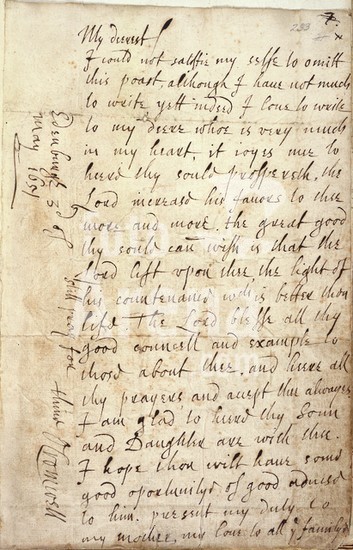 233
My deerest
I could not satisfie my selfe to omitt
this poast, although I have not much
to write yett indeed I love to write
to my deere whoe is very much
in my heart, it joyes mee to
heere thy soule prospereth, the
Lord increase his favors to thee
more and more, the great good
thy soule can wish is that the
Lord lift upon thee the light of
his countenance wch is better then
life. The Lord blesse all thy
good councell and example to
those about thee, and heere all
thy prayers and acept thee alwayes
I am glad to heere thy Sonn
and Daughter are with thee.
I hope thou wilt have some
good oportunitye of good advise
to him. present my duty to
my mother, my love to all ye familye
still pray for
thine
O Cromwell
Edenburgh 3d of
May 1651